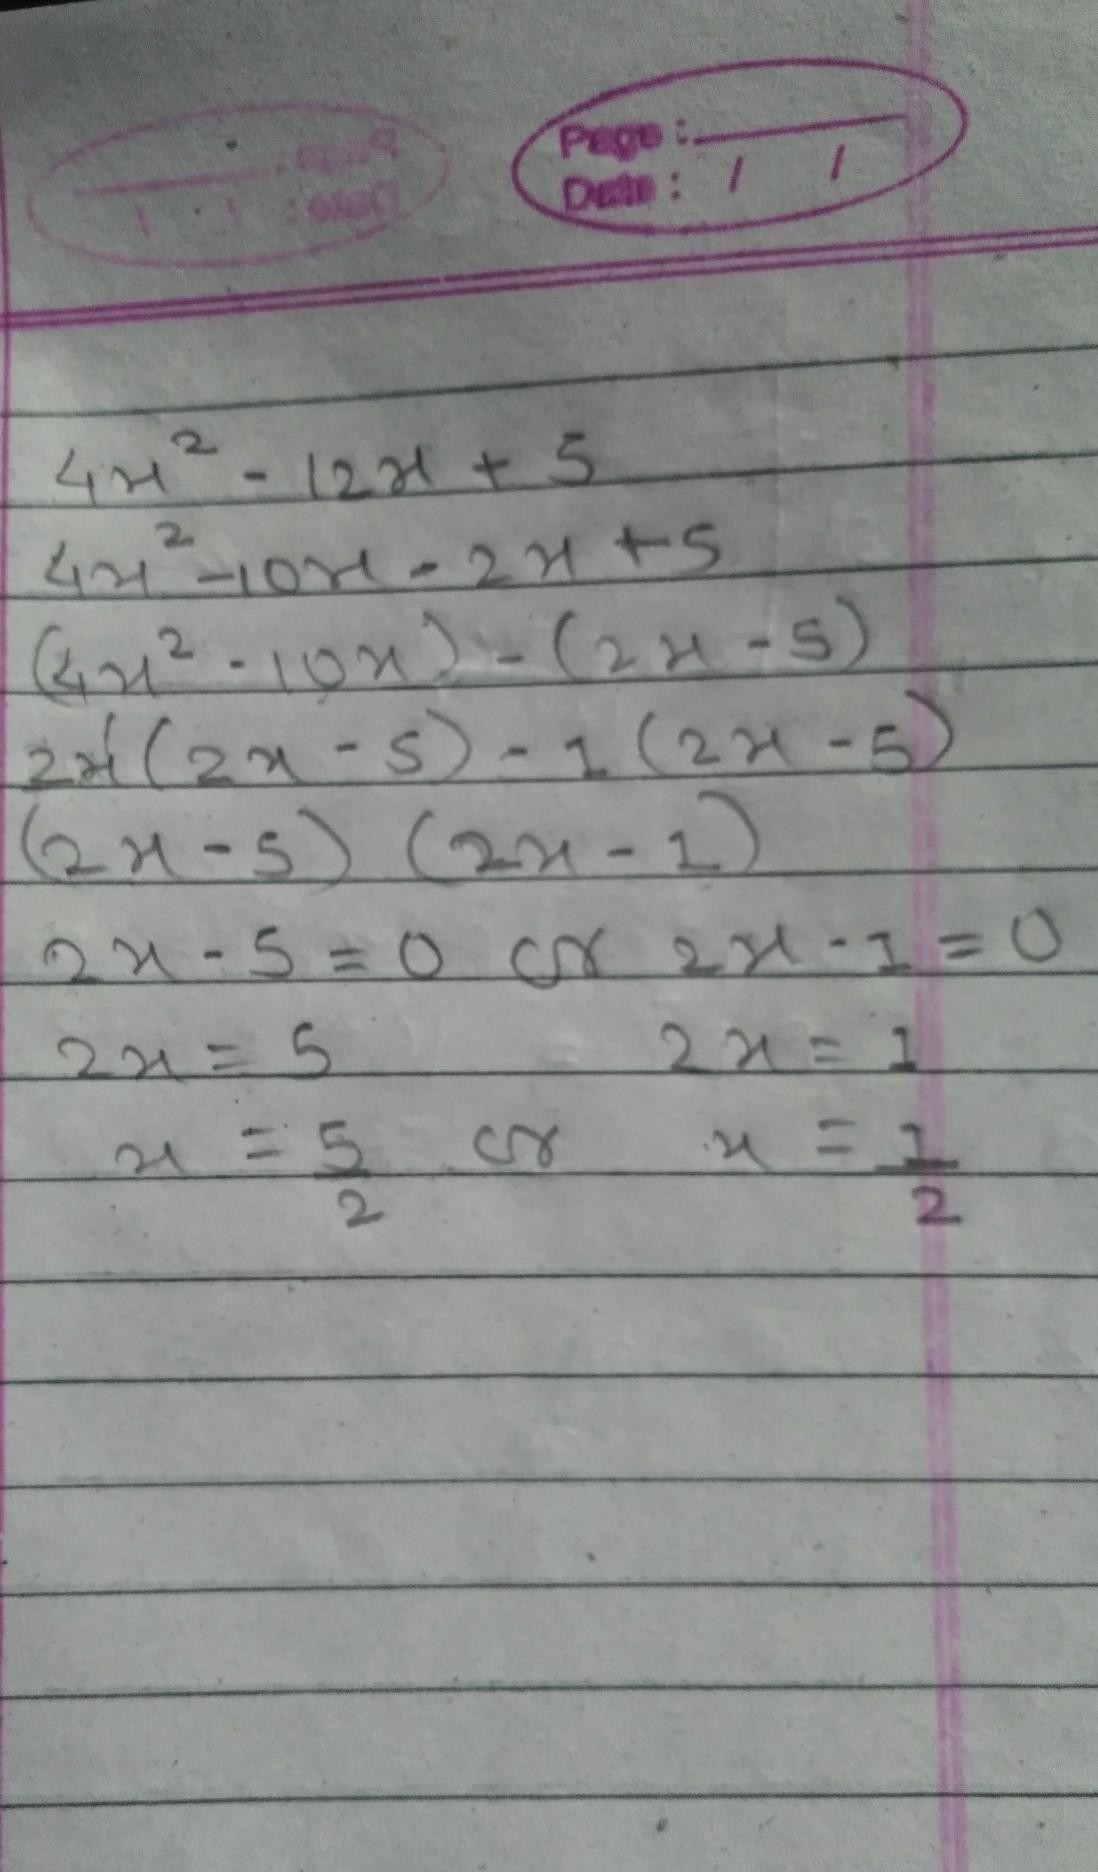 Page :
Date : / /
4x² - 12x + 5
4x² - 10x - 2x + 5
(4x² - 10x) - (2x - 5)
2x(2x - 5) - 1(2x - 5)
(2x - 5) (2x - 1)
2x - 5 = 0 or 2x - 1 = 0
2x = 5 2x = 1
x = 5/2 or x = 1/2